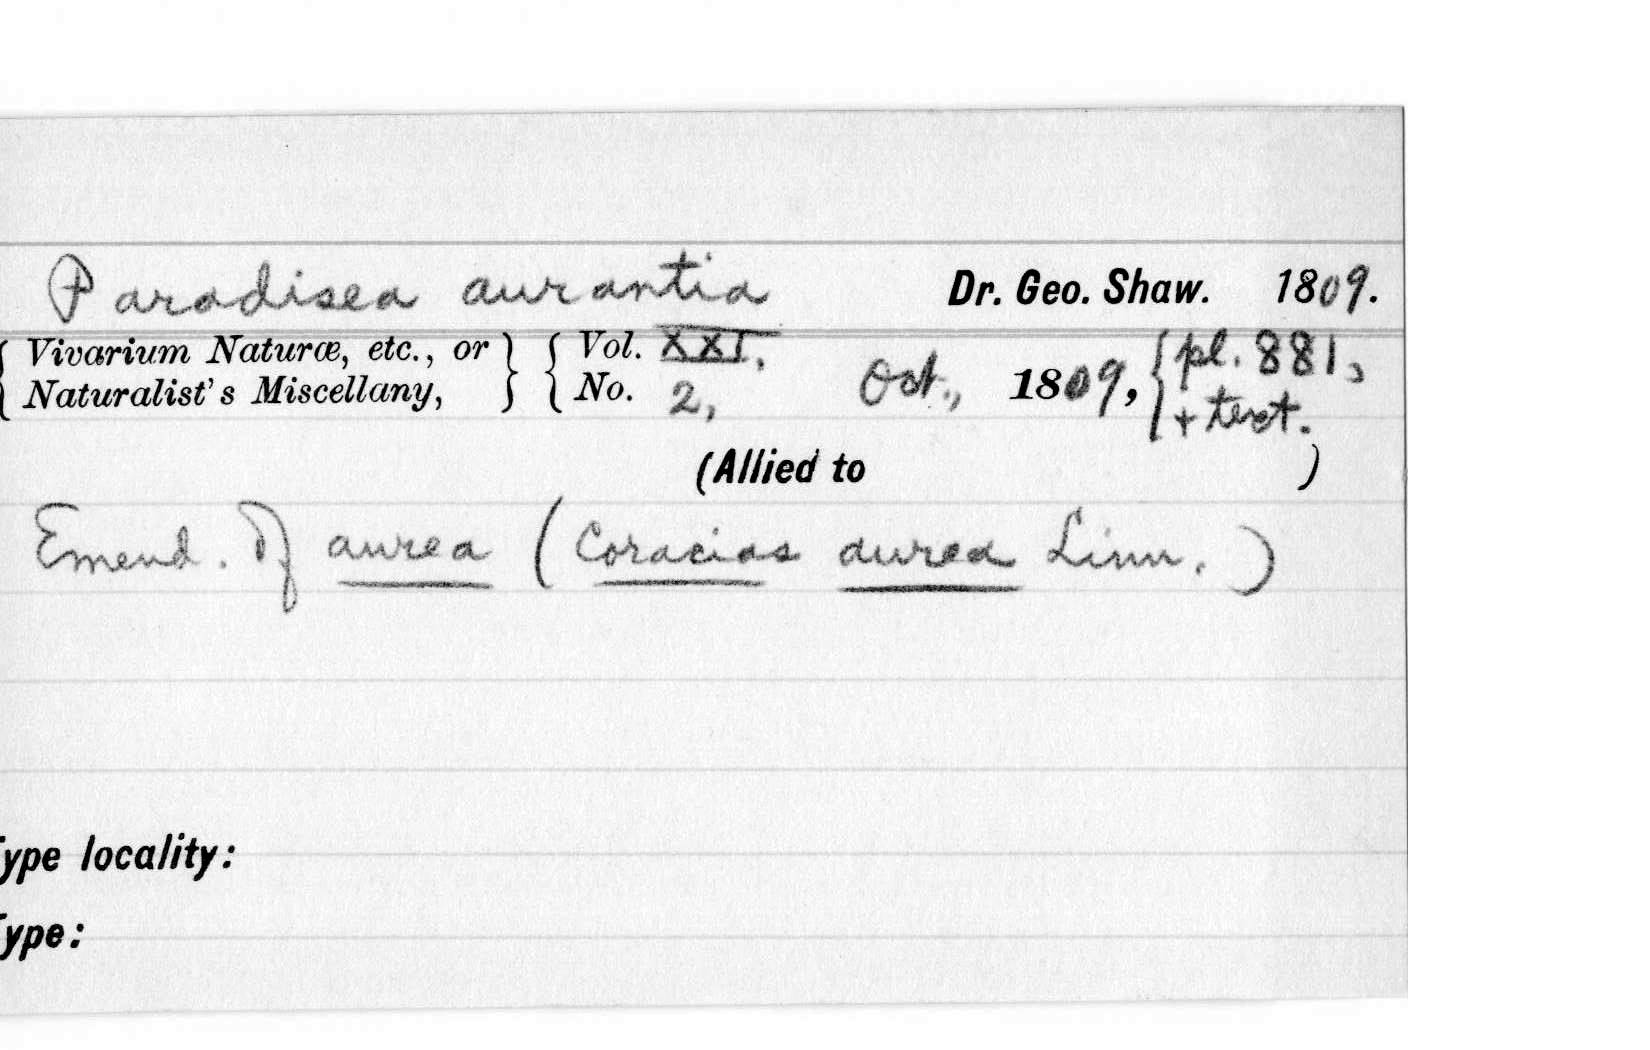 Paradisea aurantia Dr. Geo. Shaw. 1809.
{ Vivarium Naturæ, etc., or } { Vol. XXI, pl. 881,
{ Naturalist's Miscellany, } { No. 2, Oct., 1809, { + text.
(Allied to )
Emend. of aurea (Coracias aurea Linn.)
ype locality:
ype: